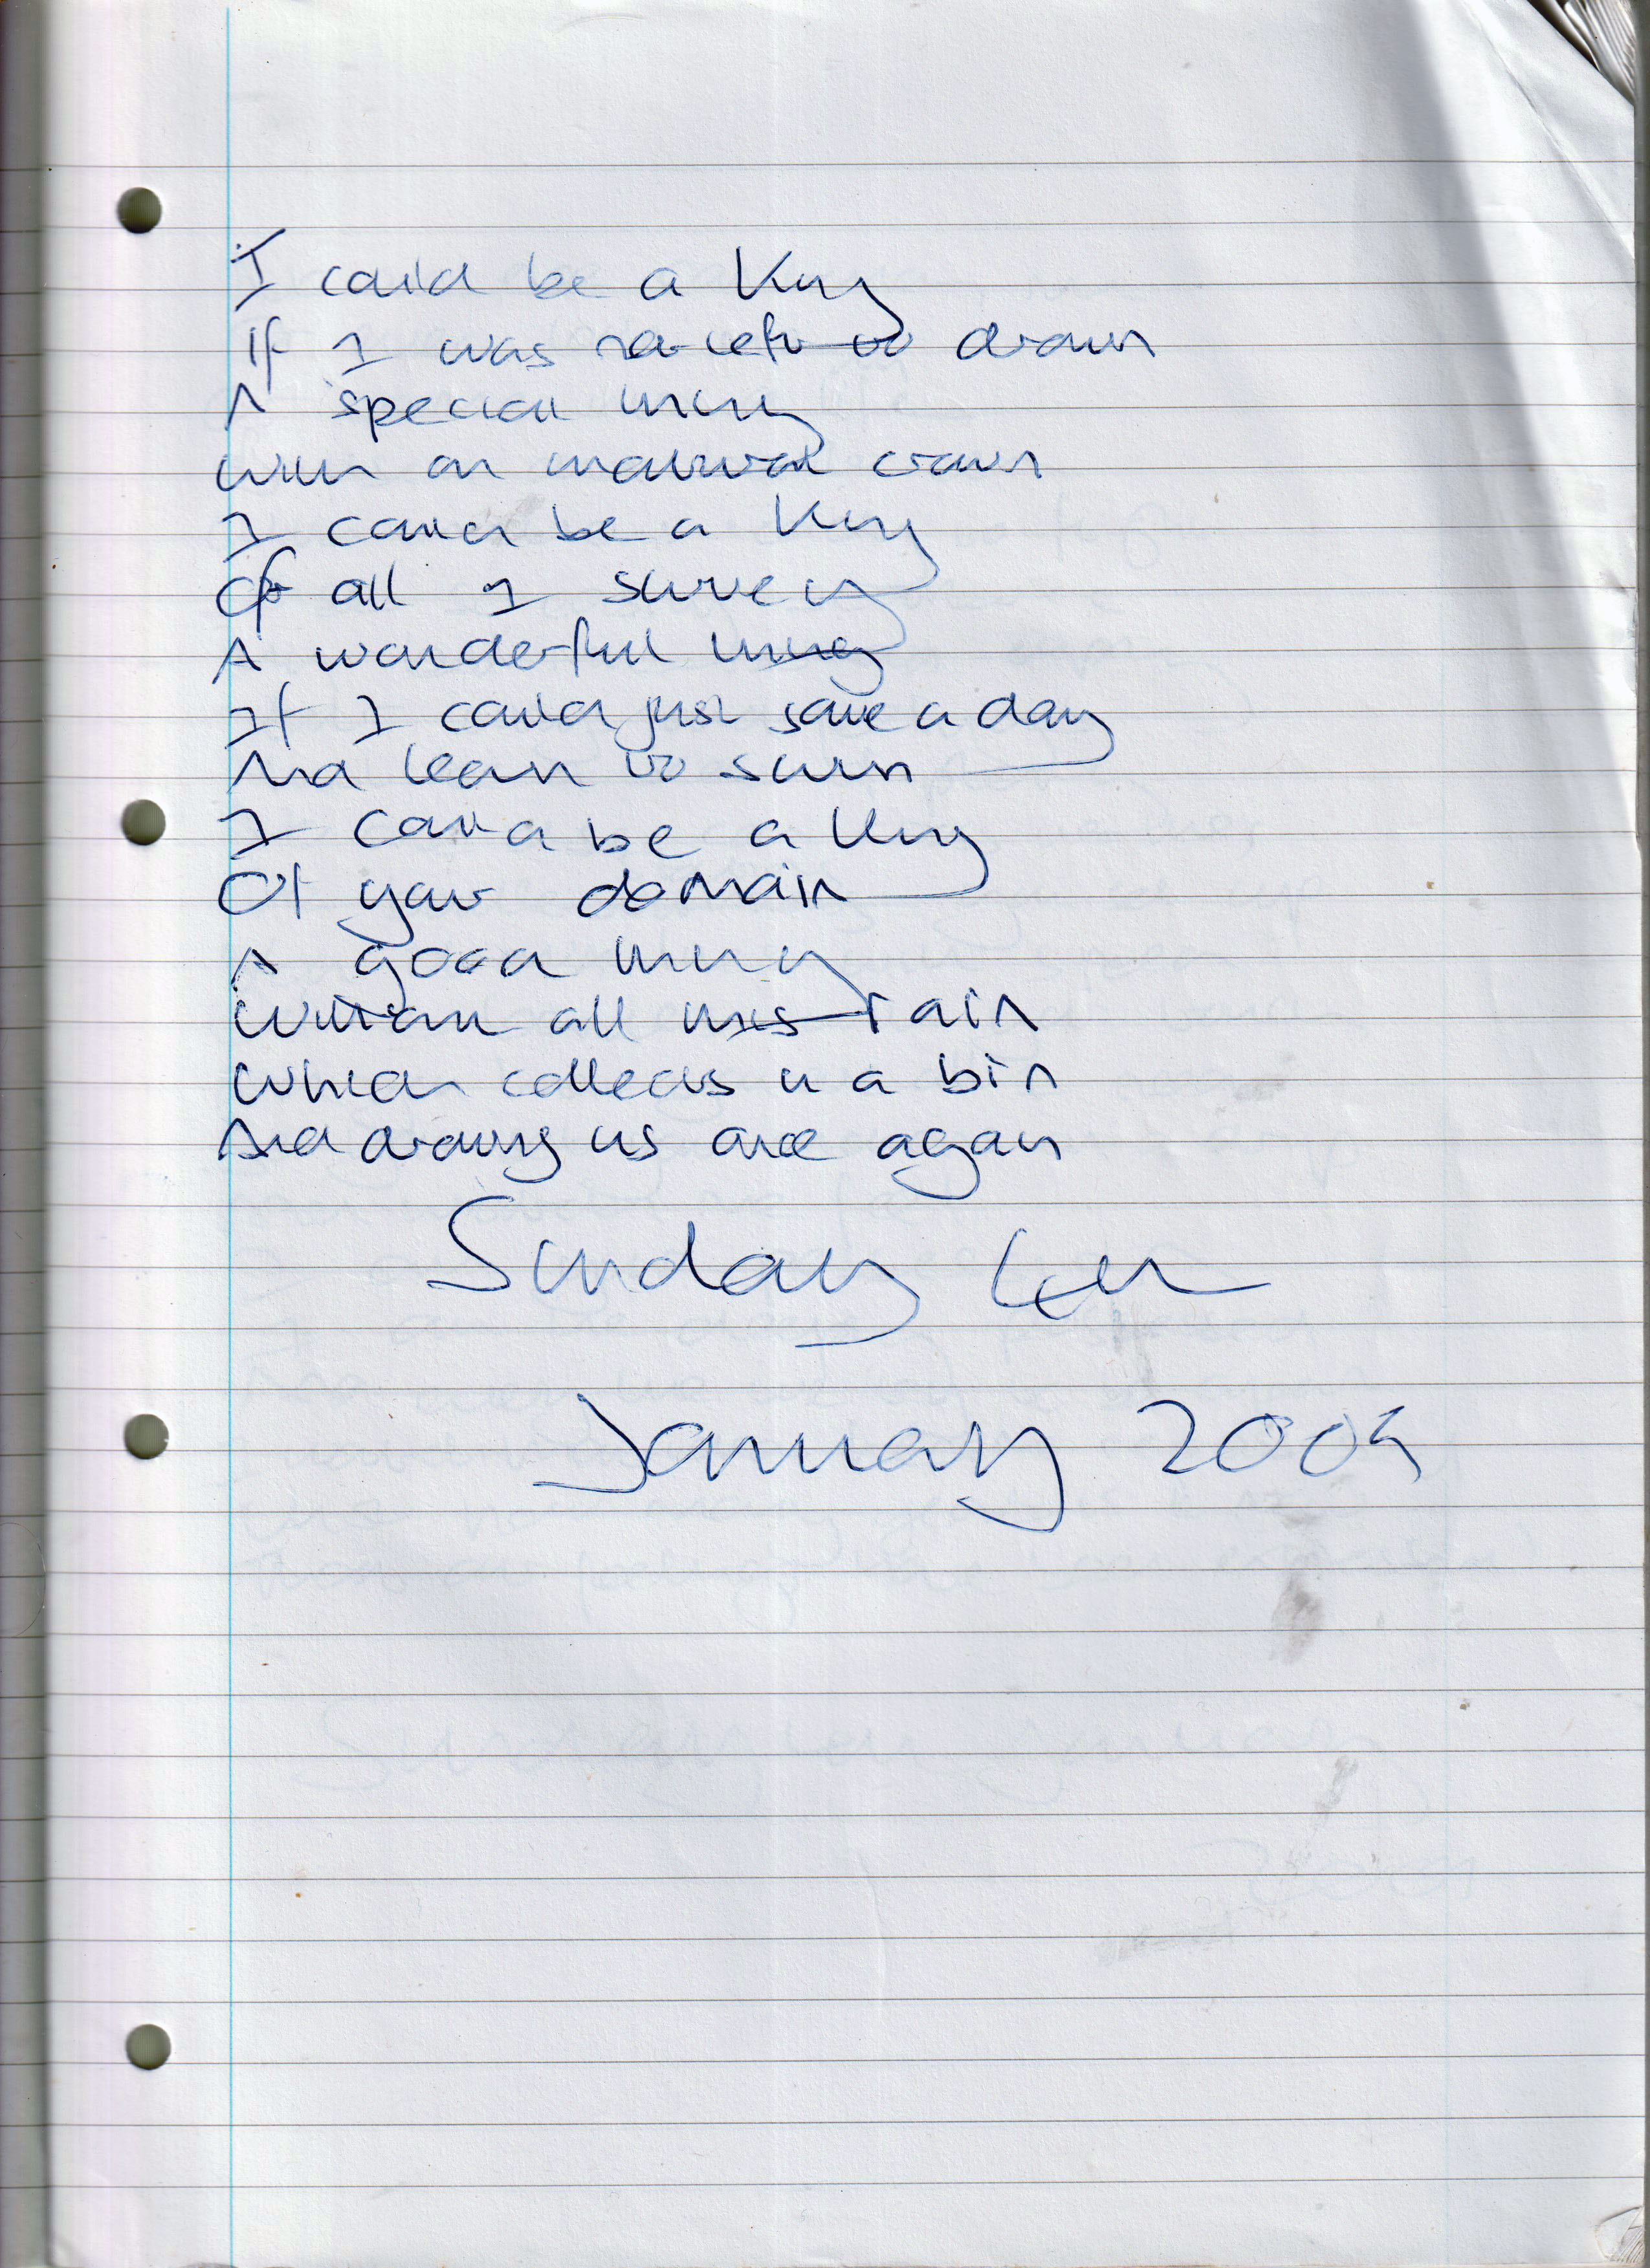 I could be a King
If I was not left to drown
A special thing
With an                crown
I could be a King
Of all I survey
A wonderful thing
If I could just save a day
And learn to swim
I could be a King
Of your domain
A good thing
Without all this rain
Which collects in a bin
And drowns us once again
Sunday
January 2009